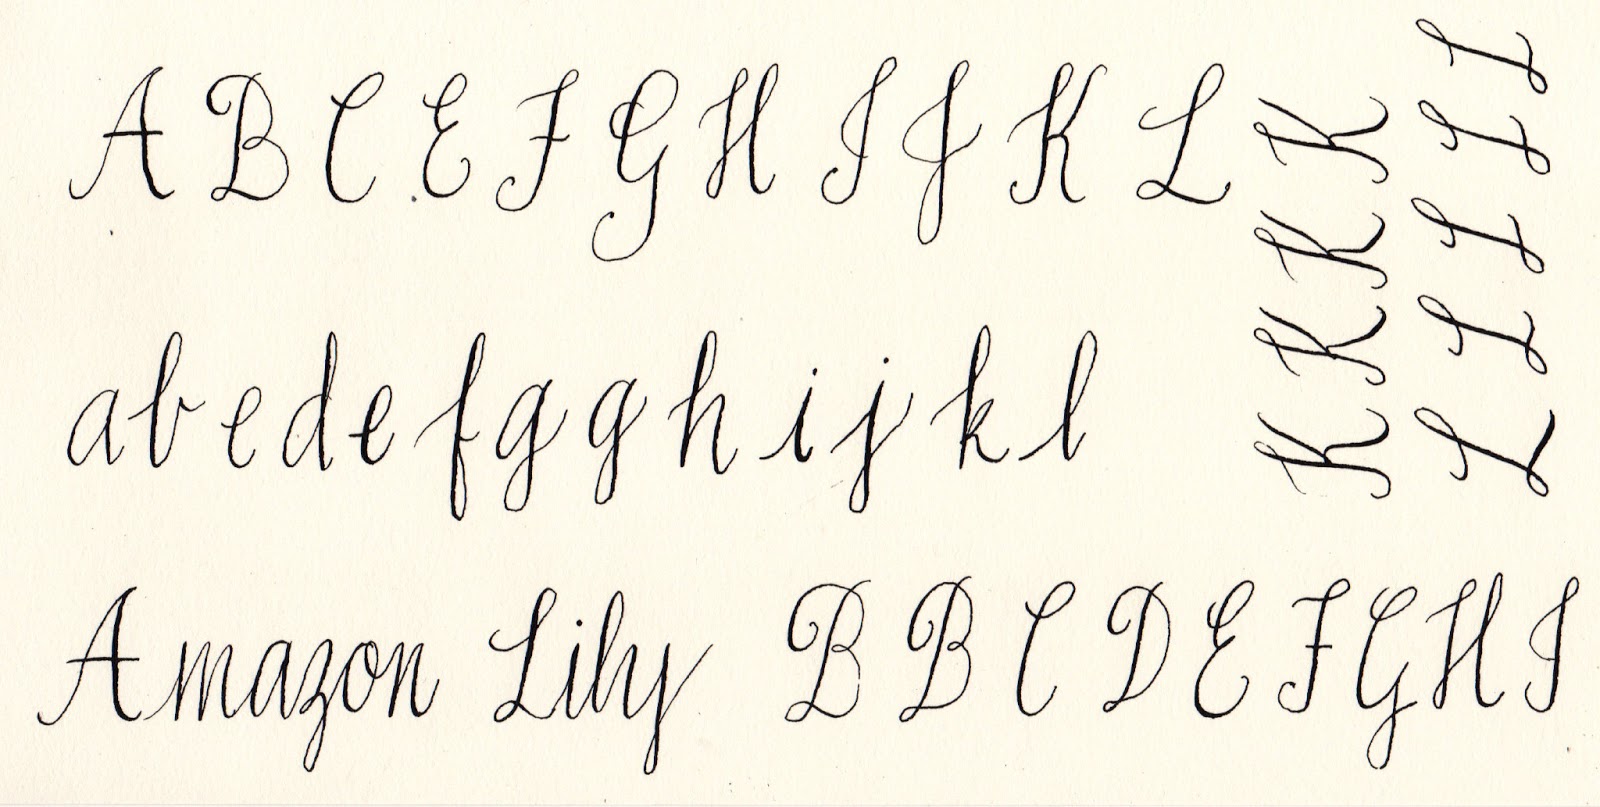 A B C E F G H I J K L
a b c d e f g g h i j k l
Amazon Lily B B C D E F G H I
K K K K
L L L L L